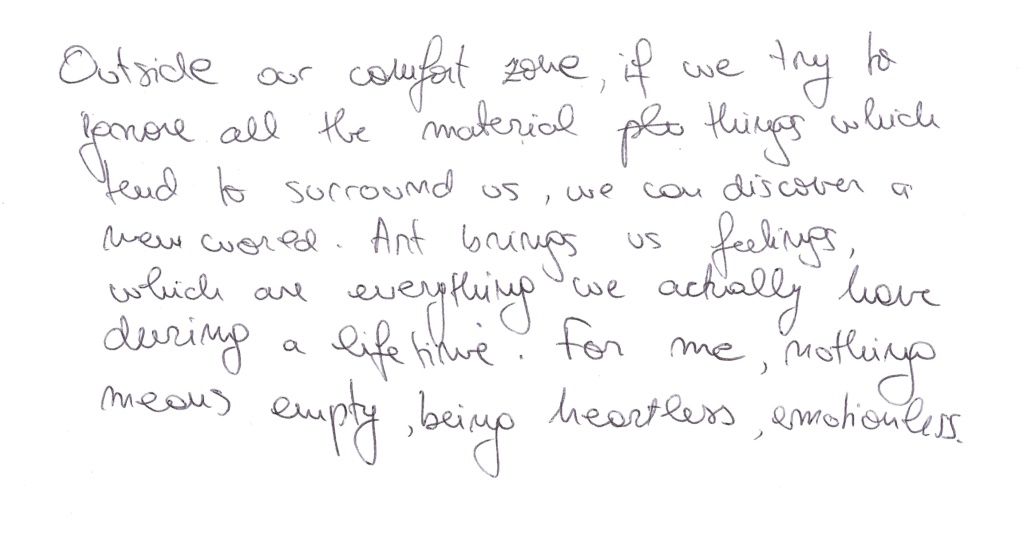 Outside our comfort zone, if we try to
ignore all the material plo things which
tend to surround us, we can discover a
new world. Art brings us feelings,
which are everything we actually have
during a lifetime. For me, nothing
means empty, being heartless, emotionless.